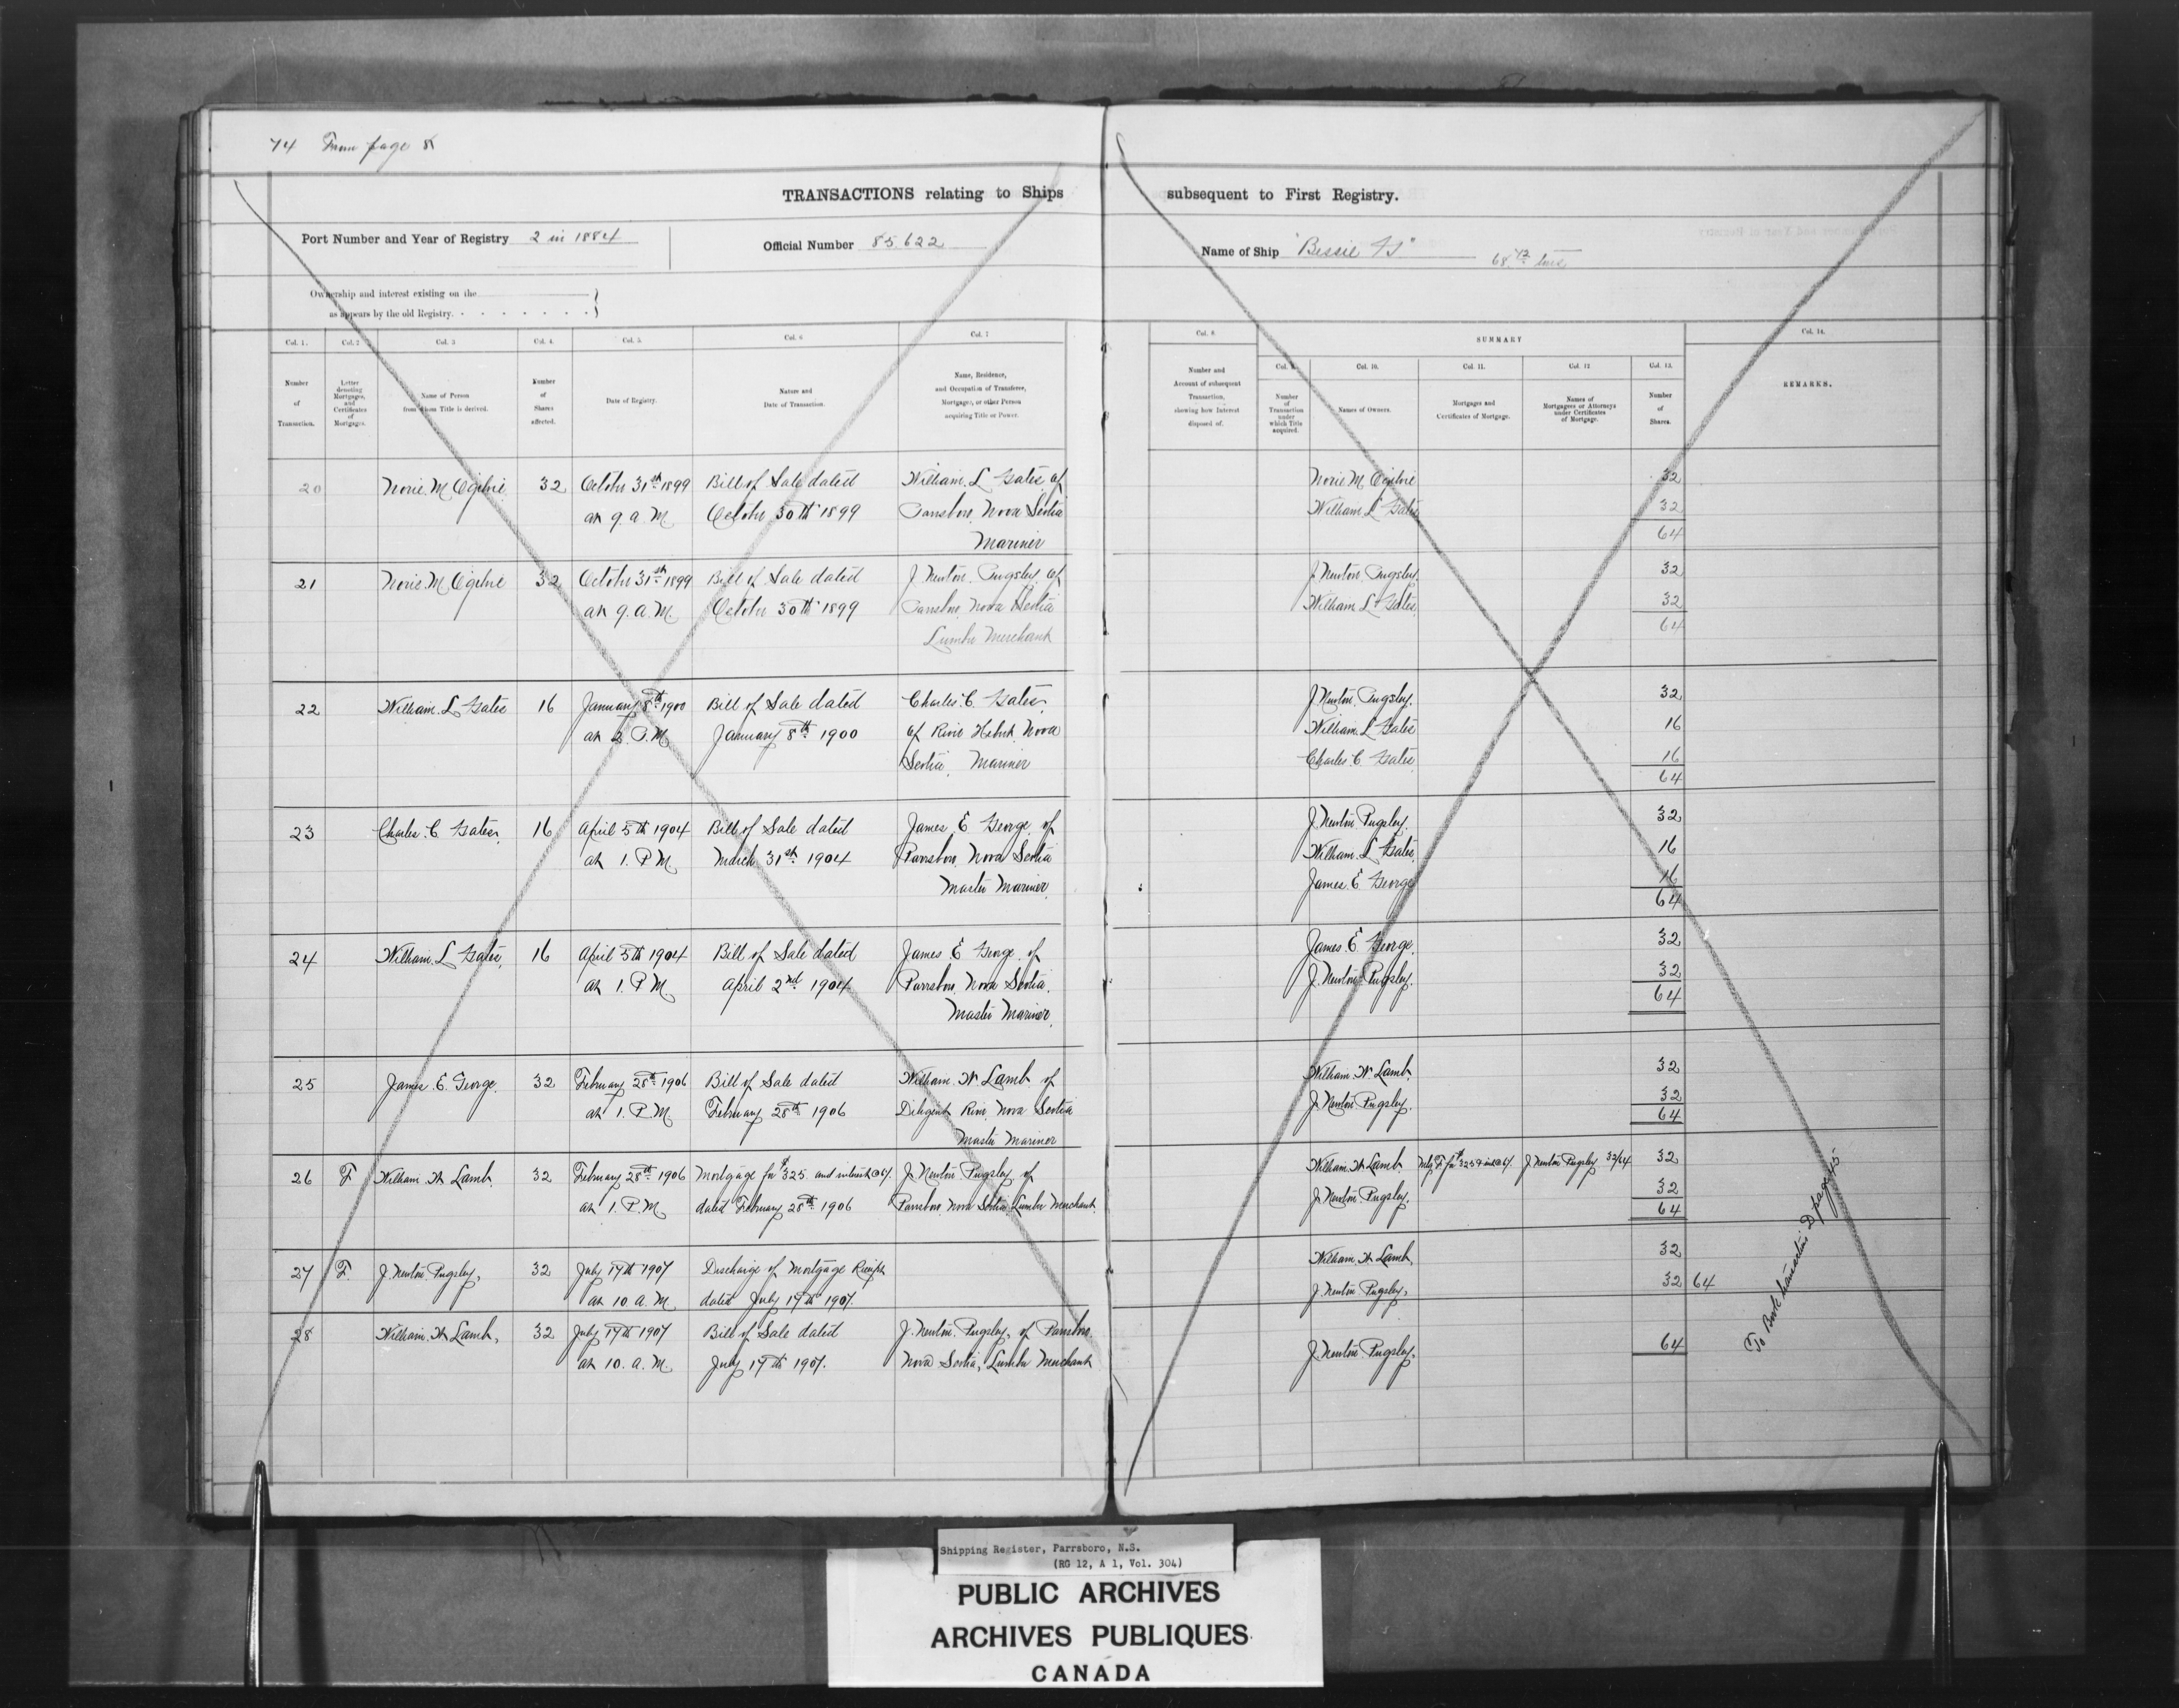 74 From page 8
TRANSACTIONS relating to Ships subsequent to First Registry.
Port Number and Year of Registry 2 in 1884
Official Number 85,622
Name of Ship "Bessie G"
68 tons
Ownership and interest existing on the
as appears by the old Registry.
Col. 1. Col. 2 Col. 3 Col. 4. Col. 5. Col. 6 Col. 7
Number of Transaction.
Letter denoting Mortgages, and Certificates of Mortgages.
Name of Person from whom Title is derived.
Number of Shares affected.
Date of Registry.
Nature and Date of Transaction.
Name, Residence, and Occupation of Transferee, Mortgagee, or other Person acquiring Title or Power.
Col. 8 SUMMARY Col. 14.
Col. 9. Col. 10. Col. 11. Col. 12 Col. 13.
Number and Account of subsequent Transaction, showing how Interest disposed of.
Number of Transaction under which Title acquired.
Names of Owners.
Mortgages and Certificates of Mortgage.
Names of Mortgagees or Attorneys under Certificates of Mortgage.
Number of Shares.
REMARKS.
20 Norie. M Ogilvie 32 October 31st 1899 Bill of Sale dated William. L Gates of
at 9. a. M October 30th 1899 Parrsboro, Nova Scotia
Mariner
Norie M Ogilvie 32
William L Gates 32
64
21 Norie. M Ogilvie 32 October 31st 1899 Bill of Sale dated J. Newton. Pugsley of
at 9. a. M October 30th 1899 Parrsboro, Nova Scotia
Lumber Merchant
J Newton Pugsley. 32
William L Gates 32
64
22 William. L Gates 16 January 8th 1900 Bill of Sale dated Charles. C. Gates.
at 2. P. M January 8th 1900 of River Hebert, Nova
Scotia, Mariner
J Newton Pugsley. 32
William. L Gates 16
Charles. C Gates 16
64
23 Charles. C Gates. 16 April 5th 1904 Bill of Sale dated James E George, of
at 1. P M March 31st 1904 Parrsboro, Nova Scotia
Master Mariner.
J. Newton Pugsley. 32
William. L Gates. 16
James. E George 16
64
24 William. L Gates, 16 April 5th 1904 Bill of Sale dated James E George, of
at 1. P M April 2nd 1904 Parrsboro, Nova Scotia.
Master Mariner.
James. E George. 32
J. Newton Pugsley. 32
64
25 James. E. George. 32 February 28th 1906 Bill of Sale dated William. W Lamb of
at 1. P. M February 28th 1906 Diligent River, Nova Scotia
Master Mariner
William. W Lamb. 32
J. Newton Pugsley. 32
64
26 F William. W Lamb. 32 February 28th 1906 Mortgage for $325. and interest @ J. Newton Pugsley of
at 1. P. M. dated February 28th 1906 Parrsboro, Nova Scotia, Lumber Merchant.
William. W Lamb Mtg F for $325 J. Newton Pugsley 32/64 32
J. Newton Pugsley. 32
64
27 F. J. Newton Pugsley, 32 July 19th 1907 Discharge of Mortgage Receipt
at 10. a. M. dated July 19th 1907.
William. W Lamb, 32
J. Newton Pugsley, 32 64
28 William. W Lamb, 32 July 19th 1907 Bill of Sale dated J. Newton. Pugsley, of Parrsboro.
at 10. a. M. July 19th 1907. Nova Scotia, Lumber Merchant
J. Newton Pugsley, 64
To Book transactions D page 45
Shipping Register, Parrsboro, N.S.
(RG 12, A 1, Vol. 304)
PUBLIC ARCHIVES
ARCHIVES PUBLIQUES
CANADA